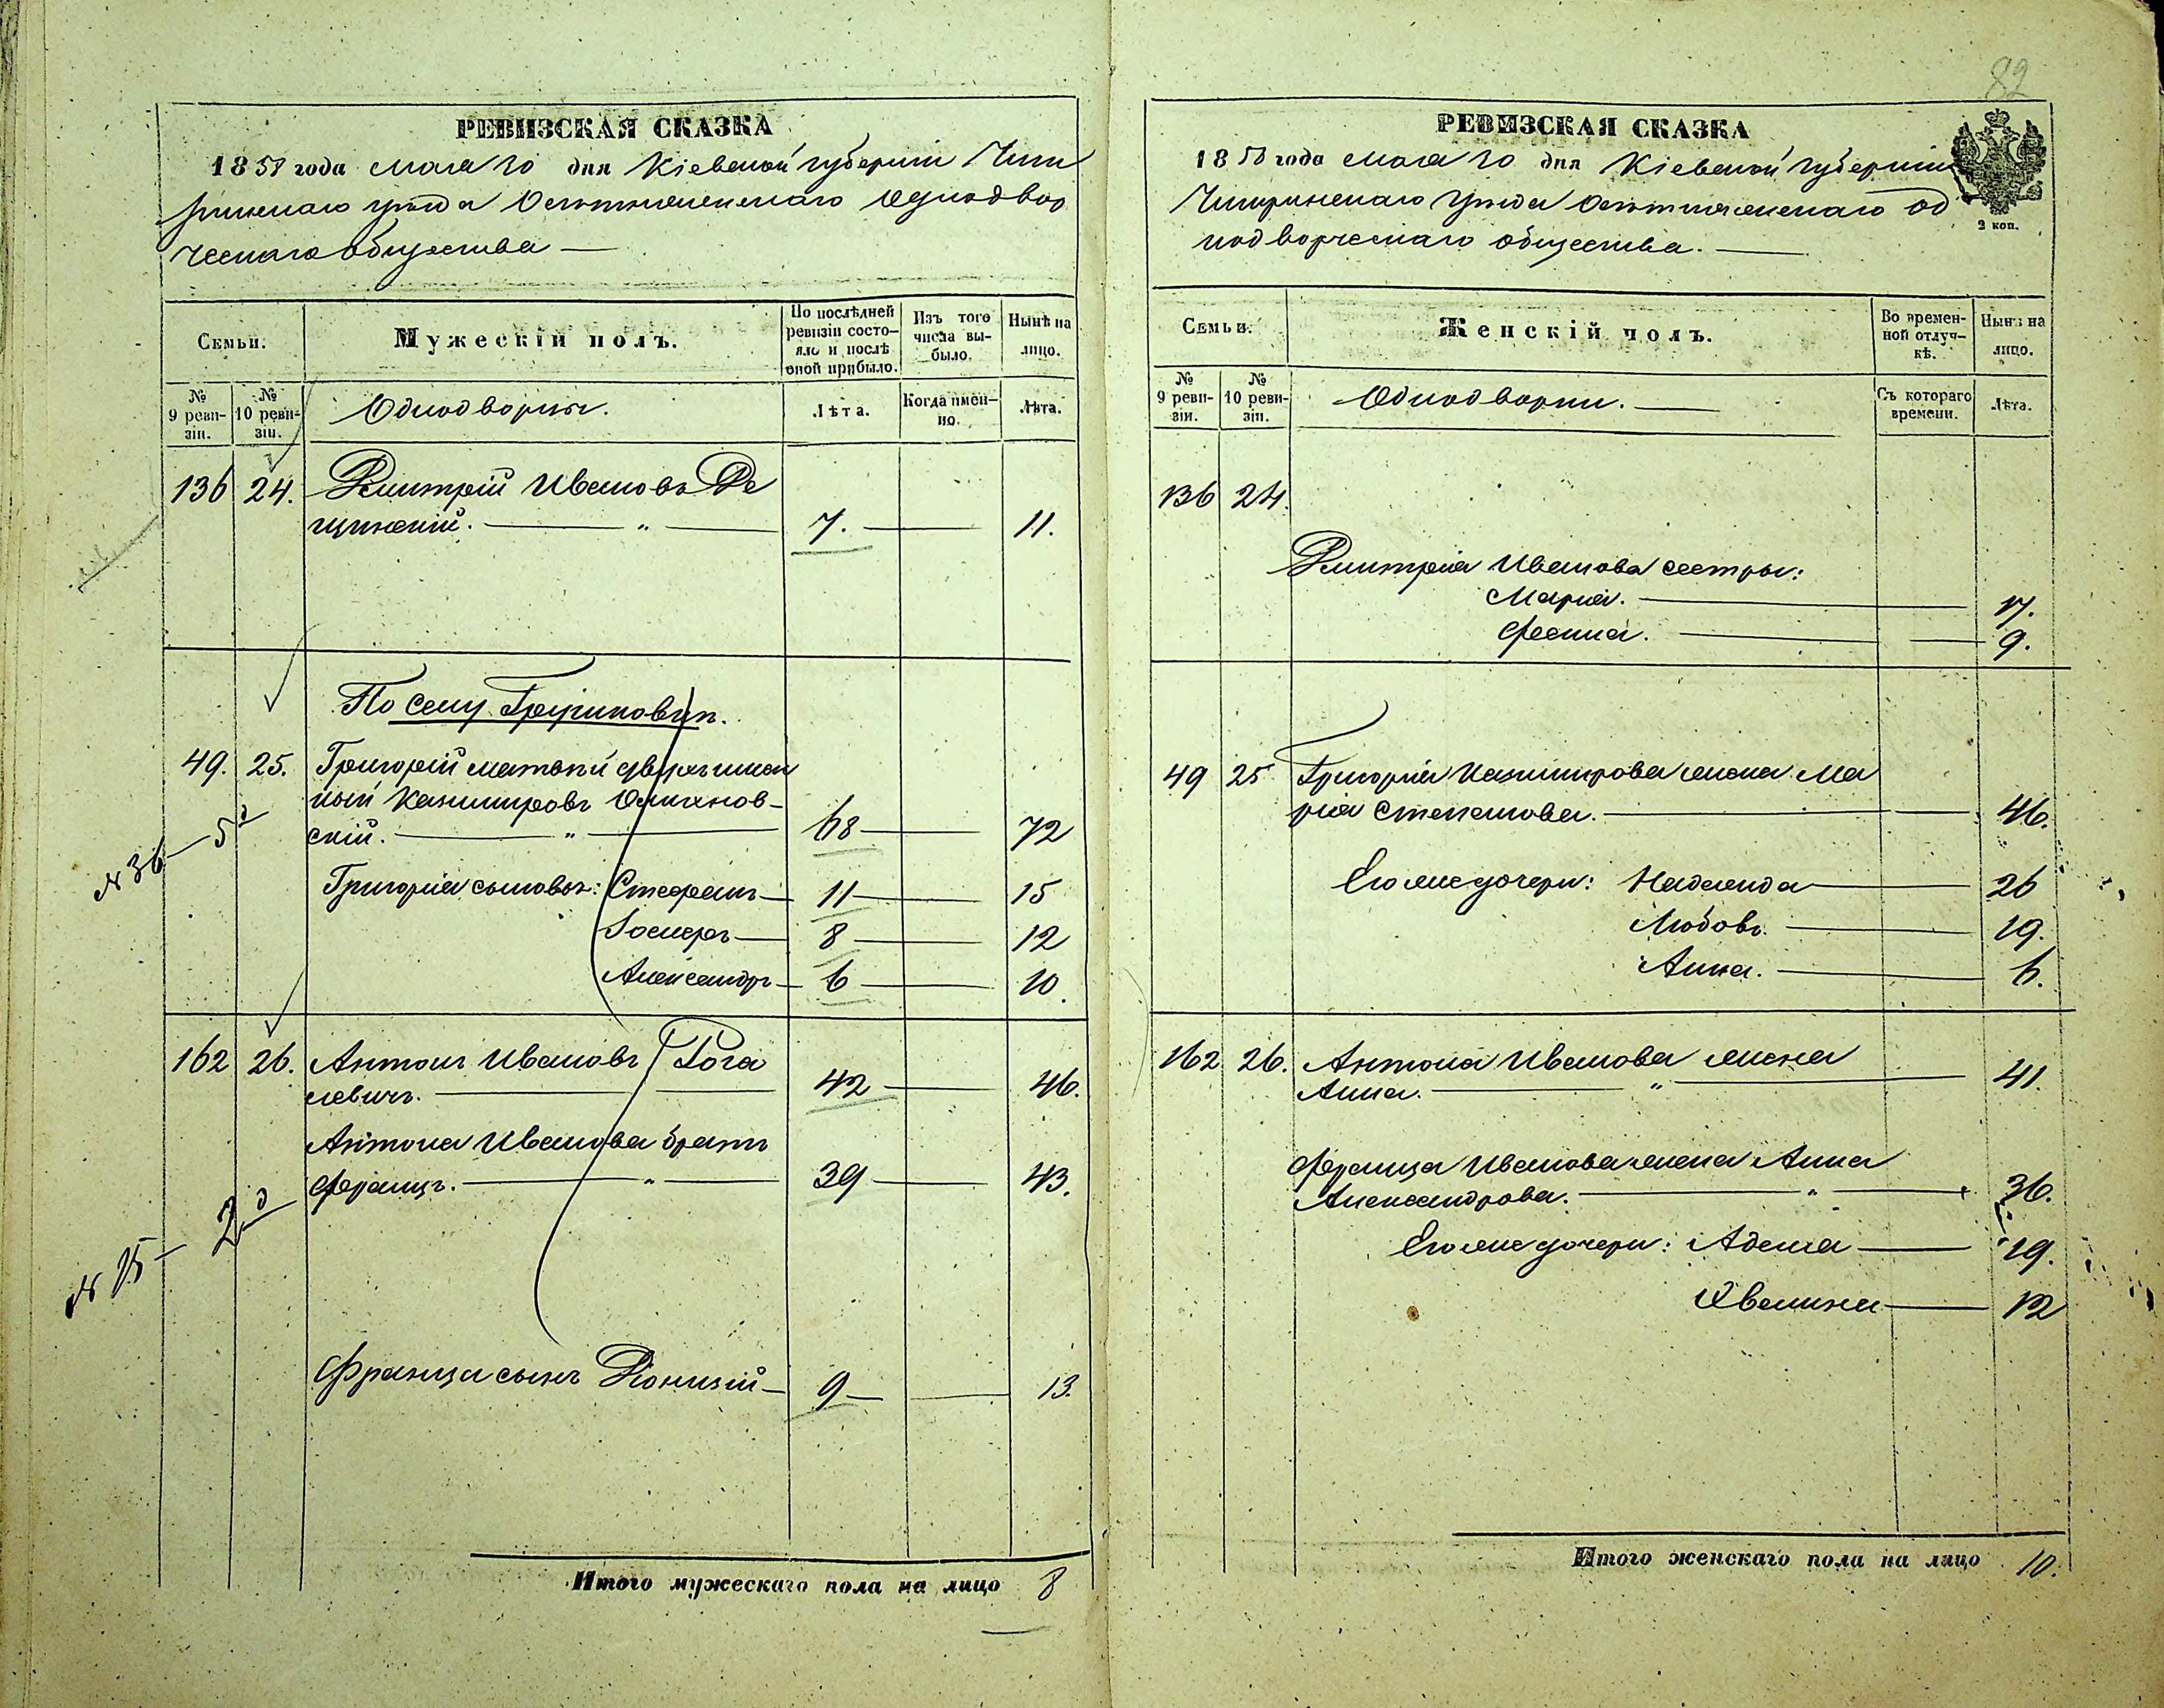 82
РЕВИЗСКАЯ СКАЗКА
1858 года мая 20 дня Кіевской губерніи Чиги
ринскаго уѣзда Однодвор
ческаго общества —
Семьи.
Мужескій полъ.
По послѣдней ревизіи состояло и послѣ оной прибыло.
Изъ того числа выбыло.
Нынѣ на лицо.
№ 9 ревизіи.
№ 10 ревизіи.
Однодворцы.
Лѣта.
Когда именно.
Лѣта.
136 24. Дмитрій Ивановъ Де
щинскій. — " — 7. — 11.
По селу Трушковцы.
49. 25. Григорій Матвѣй двухъимен
ный Казимировъ
скій. — " — 68 — 72
Григорія сыновья: Стефанъ — 11 — 15
Іосифъ — 8 — 12
Александръ — 6 — 10.
№ 36 — 5 д
162 26. Антонъ Ивановъ Рога
левичъ. — 42 — 46.
Антона Иванова братъ
Францъ. — " — 39 — 43.
№ 25 — 2 д
Франца сынъ Діонизій — 9 — 13.
Итого мужескаго пола на лицо 8
РЕВИЗСКАЯ СКАЗКА
1858 года мая 20 дня Кіевской губерніи
Чигиринскаго уѣзда Од
нодворческаго общества. —
2 коп.
Семьи.
Женскій полъ.
Во временной отлучкѣ.
Нынѣ на лицо.
№ 9 ревизіи.
№ 10 ревизіи.
Однодворки. —
Съ котораго времени.
Лѣта.
136 24.
Дмитрія Иванова сестры:
Марія. — 17.
— 9.
49 25 Григорія Казимирова жена Ма
рія Степанова. — 46.
Его же дочери: Надежда — 26
Любовь. — 19.
Анна. — 6.
162 26. Антона Иванова жена
Анна. — " — 41.
Франца Иванова жена Анна
Александрова. — " — 36.
Его же дочери: Аделя — 19.
Эвелина — 12
Итого женскаго пола на лицо 10.